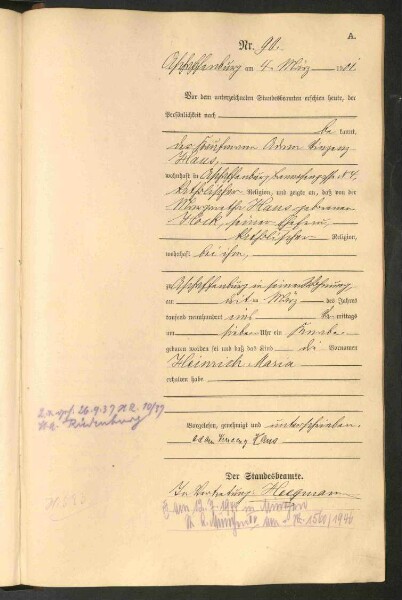 A.
Nr. 90.
Aschaffenburg am 4. März 1901.
Vor dem unterzeichneten Standesbeamten erschien heute, der
Persönlichkeit nach
be kannt,
der Kaufmann Adam
Haus,
wohnhaft in Aschaffenburg, N. 4,
katholischer Religion, und zeigte an, daß von der
Margaretha Haus, geborenen
Hock, seiner Ehefrau,
katholischer Religion,
wohnhaft bei ihm,
zu Aschaffenburg in seiner Wohnung
am März des Jahres
tausend neunhundert eins mittags
um sieben Uhr ein Knabe
geboren worden sei und daß das Kind die Vornamen
Heinrich Maria
erhalten habe
Vorgelesen, genehmigt und unterschrieben.
Adam Haus
Der Standesbeamte.
In Vertretung: Hegmann
26.9.37 10/37
in München
Nr. 1560/1970